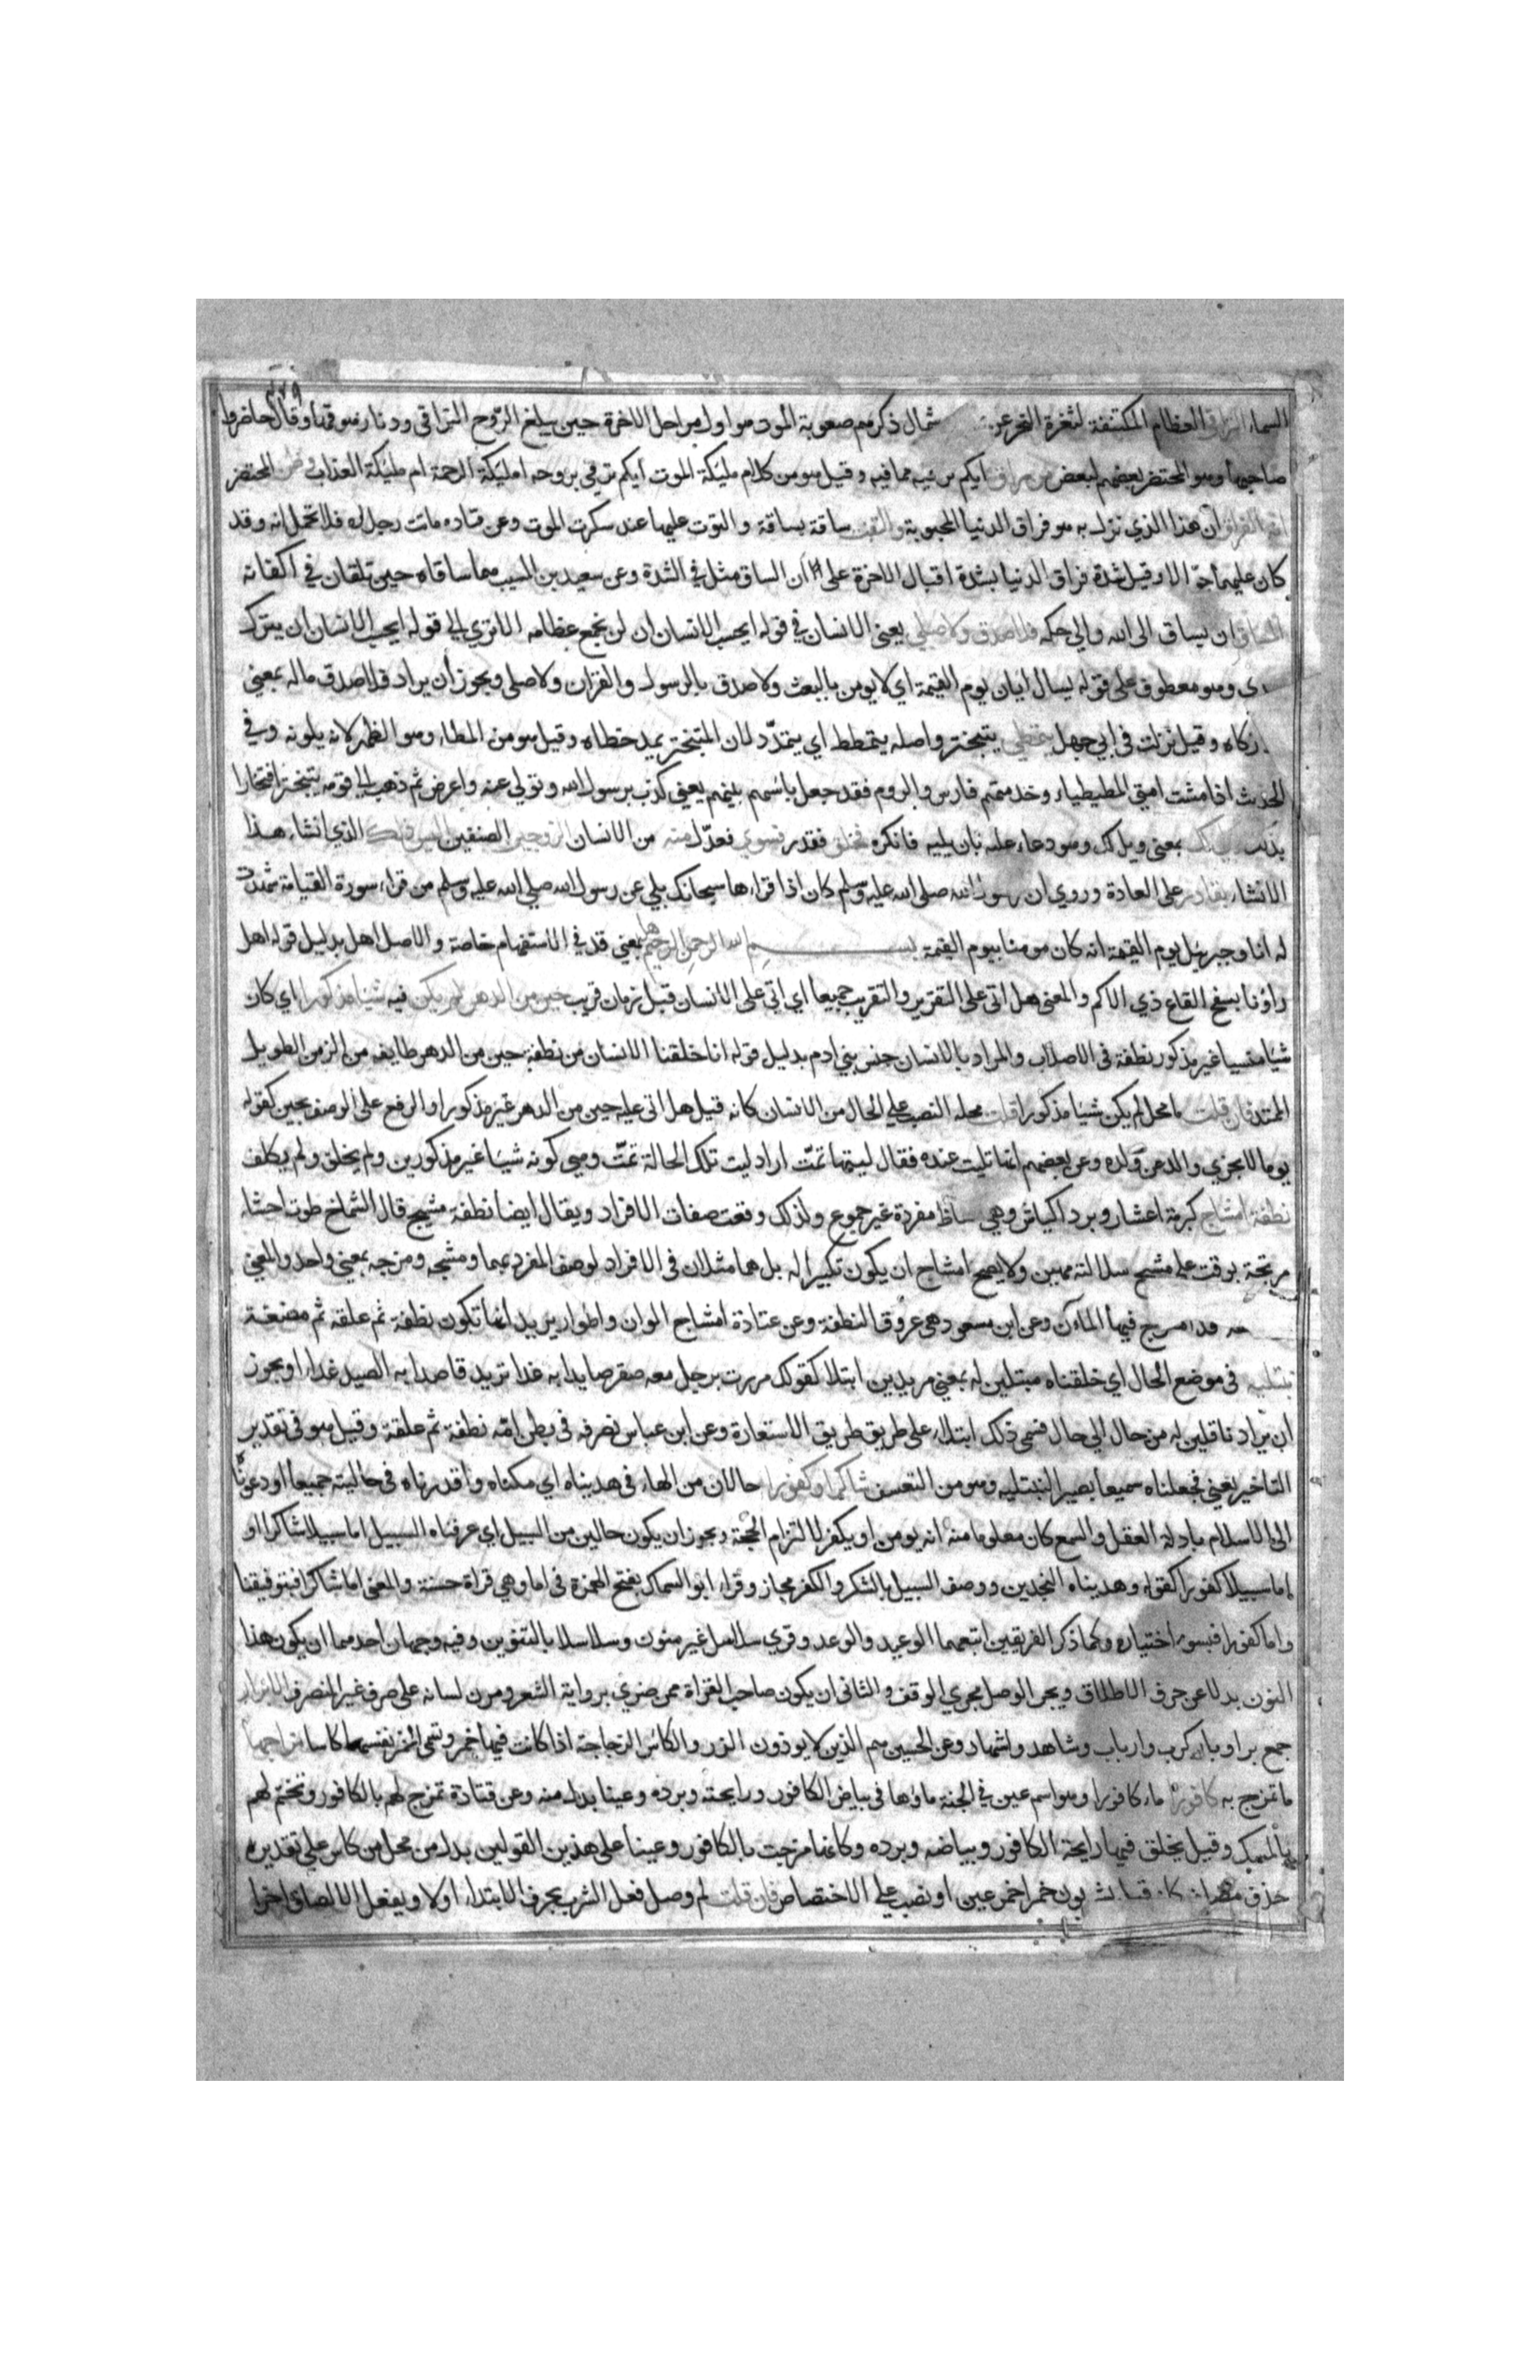 السماء التراقي العظام المكتنفة لثغرة النحر عن شمال ذكرهم صعوبة الموت هو اول مراحل الاخرة حين يبلغ الروح التراقي ودنا زهوقها وقال حاضروا
صاحبها وهو المحتضر بعضهم لبعض من راق ايكم يرقيه مما فيه وقيل هو من كلام مليكة الموت ايكم يرقي بروحه امليكة الرحمة ام مليكة العذاب وظن المحتضر
انه الفراق ان هذا الذي نزل به هو فراق الدنيا المحبوبة والتفت ساقه بساقه والتوت عليها عند سكرت الموت وعن قتاده ماتت رجلاه فلا تحملانه وقد
كان عليهما جوالا وقيل شدة فراق الدنيا بشدة اقبال الاخرة على ان الساق مثل في الشدة وعن سعيد بن المسيب هما ساقاه حين تلقان في اكفانه
المساق ان يساق الى الله والي حكمه فلا صدق ولا صلي يعني الانسان في قوله ايحسب الانسان ان لن نجمع عظامه الا تري الي قوله ايحسب الانسان ان يترك
دي وهو معطوف على قوله يسال ايان يوم القيمة اي لا يومن بالبعث ولا صدق بالرسول والقران ولا صلى ويجوز ان يراد فلا صدق ماله بمعني
زكاه وقيل نزلت في ابي جهل يتمطي يتبختر واصله يتمطط اي يتمدد لان المتبختر يمد خطاه وقيل هو من المطا وهو الظهر لانه يلويه وفي
الحديث اذا مشت امتي المطيطياء وخدمتهم فارس والروم فقد جعل باسهم بينهم يعني كذب برسول الله وتولي عنه واعرض ثم ذهب الي قومه يتبختر افتخارا
بذلك اولى لك بمعنى ويل لك وهو دعاء عليه بان يليه ما يكره فخلق فقدر فسوي فعدل منه من الانسان الزوجين الصنفين اليس ذلك الذي انشاء هذا
الانشاء بقادر على العادة وروي ان رسول الله صلى الله عليه وسلم كان اذا قراءها سبحانك بلي عن رسول الله صلي الله عليه وسلم من قراء سورة القيامة شهدت
له انا وجبريل يوم القيمة انه كان مومنا بيوم القيمة بسم الله الرحمن الرحيم هل بمعني قد في الاستفهام خاصة والاصل اهل بدليل قوله اهل
راونا بسفح القاع ذي الاكم والمعنى هل اتى على التقرير والتقريب جميعا اي اتي على الانسان قبل زمان قريب حين من الدهر لم يكن فيه شيئا مذكورا اي كان
شيا منسيا غير مذكور نطفة في الاصلاب والمراد بالانسان جنس بني ادم بدليل قوله انا خلقنا الانسان من نطفة حين من الدهر طايفه من الزمن الطويل
الممتد فان قلت ما محل لم يكن شيئا مذكورا قلت محله النصب علي الحال من الانسان كانه قيل هل اتى عليه حين من الدهر غير مذكور او الرفع على الوصف بحين كقوله
يوما لا يجزي والد عن ولده وعن بعضهم انها تليت عنده فقال ليتها تمت اراد ليت تلك الحالة تمت وهي كونه شيئا غير مذكورين ولم يخلق ولم يكلف
نطفة امشاج كبرمة اعشار وبرد اكياش وهي الفاظ مفردة غير جموع ولذلك وقعت صفات الافراد ويقال ايضا نطفة مشيج قال الشماخ طوت احشاء
مرتجة بوقت علي مشيج سلالته مهين ولا يصح امشاج ان يكون تكسيرا له بل هما مثلان في الافراد لوصف المفرد بهما ومشجه ومزجه بمعني واحد والمعني
قد امتزج فيها الماآن وعن ابن مسعود هي عروق النطفة وعن قتادة امشاج الوان واطوار يريد انها تكون نطفة ثم علقة ثم مضغة
نبتليه في موضع الحال اي خلقناه مبتلين له بمعني مريدين ابتلاءه كقولك مررت برجل معه صقر صايدا به غدا تريد قاصدا به الصيد غدا او يجوز
ان يراد ناقلين له من حال الي حال فسمي ذلك ابتلاء على طريق طريق الاستعارة وعن ابن عباس نصرفه في بطن امه نطفة ثم علقة وقيل هو في تقدير
التاخير يعني فجعلناه سميعا بصيرا لنبتليه وهو من التعسف شاكرا وكفورا حالان من الهاء في هديناه اي مكناه واقدرناه في حاليته جميعا او دعوناه
الى الاسلام بادلة العقل والسمع كان معلوما منه انه يومن او يكفر لالتزام الحجة ويجوز ان يكون حالين من السبيل اي عرفناه السبيل اما سبيلا شاكرا او
اما سبيلا كفورا كقوله وهديناه النجدين ووصف السبيل بالشكر والكفر مجاز وقراء ابو السماك بفتح الهمزة في اما وهي قراة حسنة والمعنى اما شاكرا فبتوفيقنا
واما كفورا فبسوء اختياره ولما ذكر الفريقين اتبعهما الوعيد والوعد وقري سلاسل غير منون وسلاسلا بالتنوين وفيه وجهان احدهما ان يكون هذا
النون بدلا عن حرف الاطلاق ويجري الوصل مجري الوقف والثاني ان يكون صاحب القراة ممن ضري برواية الشعر ومرن لسانه على صرف غير المنصرف الابرار
جمع بر او بار كرب وارباب وشاهد واشهاد وعن الحسين هم الذين لا يوذون الذر والكاس الزجاجة اذا كانت فيها خمر وتسمى الخمر نفسها كاسا مزاجها
ما تمزج به كافورا ماء كافورا وهو اسم عين في الجنة ماؤها في بياض الكافور ورايحته وبرده وعينا بدل منه وعن قتادة تمزج لهم بالكافور وتختم لهم
بالمسك وقيل يخلق فيها رايحة الكافور وبياضه وبرده وكانها مزجت بالكافور وعينا على هذين القولين بدل من محل من كاس على تقدير
حذف مضاف كانه قيل يشربون خمرا خمر عين او نصب علي الاختصاص فان قلت لم وصل فعل الشرب بحرف الابتداء اولا وبفعل الالصاق اخرا